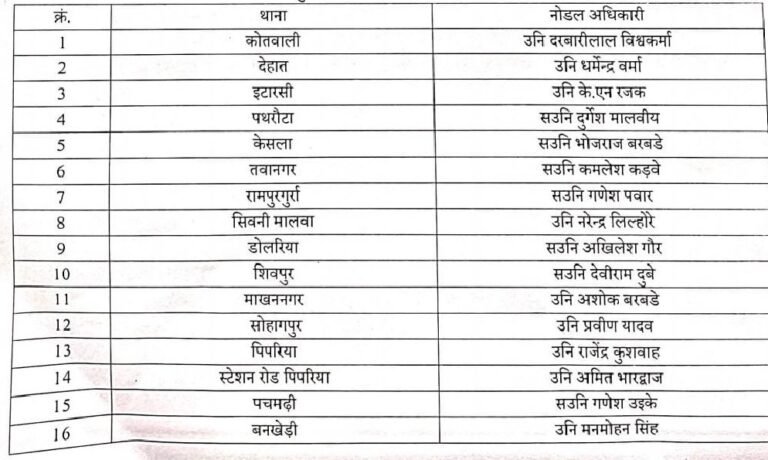 क्रं. थाना नोडल अधिकारी
1 कोतवाली उनि दरबारीलाल विश्वकर्मा
2 देहात उनि धर्मेन्द्र वर्मा
3 इटारसी उनि के.एन रजक
4 पथरौटा सउनि दुर्गेश मालवीय
5 केसला सउनि भोजराज बरबडे
6 तवानगर सउनि कमलेश कड़वे
7 रामपुरगुर्रा सउनि गणेश पवार
8 सिवनी मालवा उनि नरेन्द्र लिल्होरे
9 डोलरिया सउनि अखिलेश गौर
10 शिवपुर सउनि देवीराम दुबे
11 माखननगर उनि अशोक बरबडे
12 सोहागपुर उनि प्रवीण यादव
13 पिपरिया उनि राजेंद्र कुशवाह
14 स्टेशन रोड पिपरिया उनि अमित भारद्वाज
15 पचमढ़ी सउनि गणेश उइके
16 बनखेड़ी उनि मनमोहन सिंह